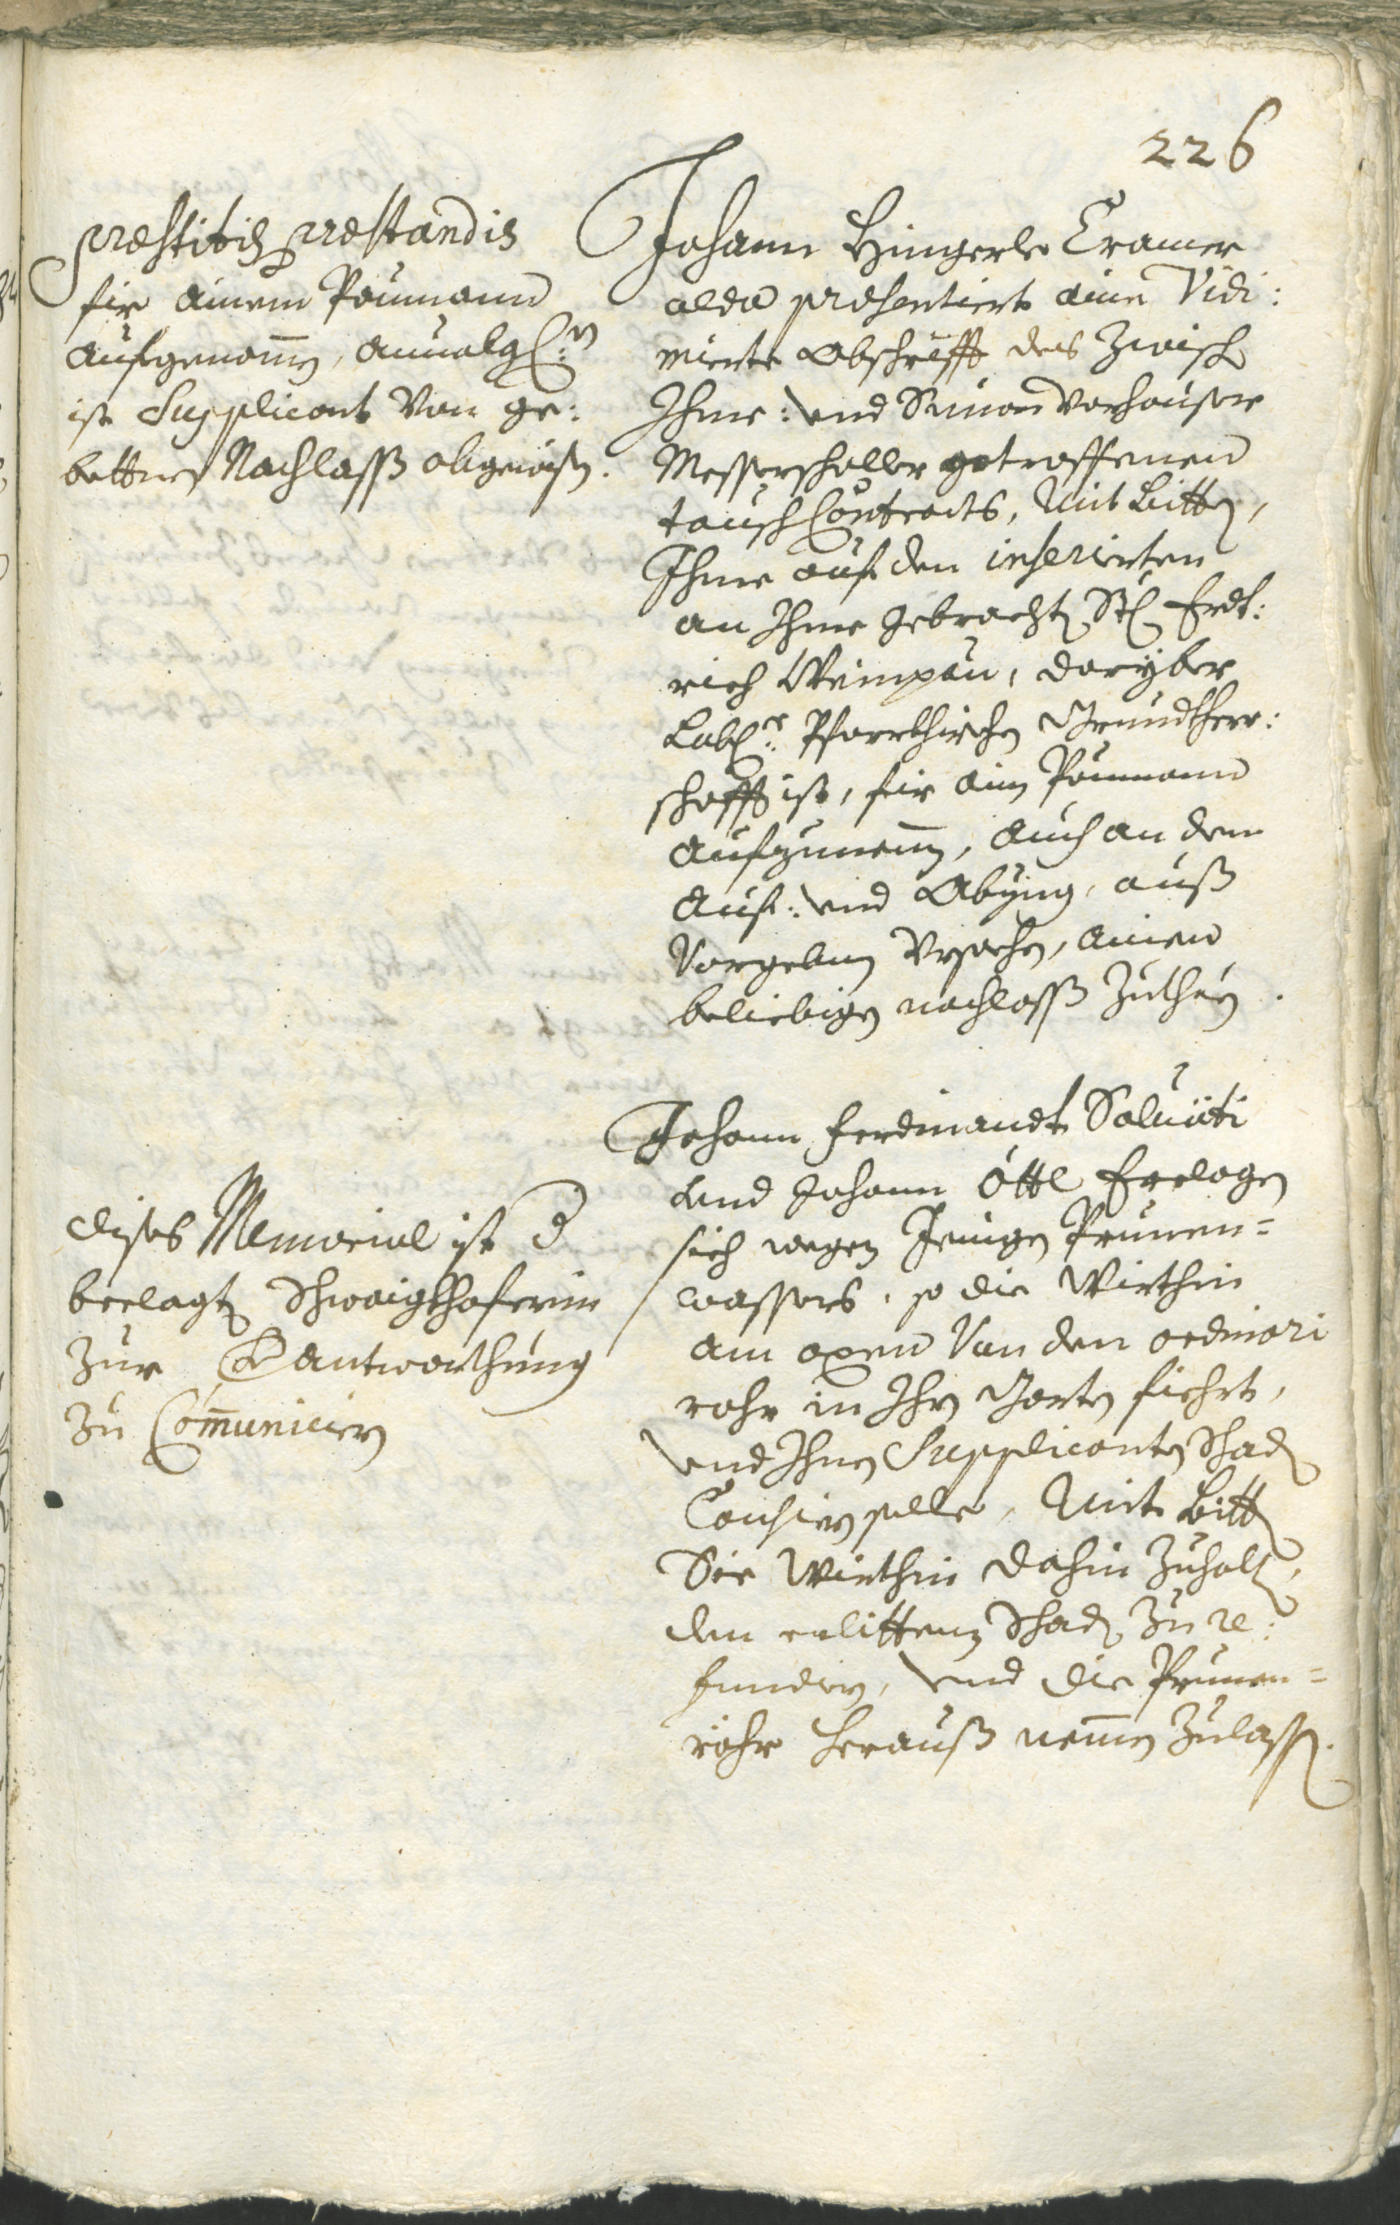 226
præstitis præstandis
fir ainem Paumann
aufgenomen, annalg:n
ist Supplicant von ge:
bettnen Nachlasß abgewisen.
Johann Hingerle Cramer
alda præsentiert aine Vidi:
mierte Abschrifft des zwischen
Ihme: und Simon Vorhauser
Messerschaller getroffenen
tausch Contracts, mit Bitten,
Ihme auf den inserierten
an Ihme gebrachten Stl Erdt:
rich Weinpau, dariber
Lobl:r Pfarrkhirchen Grundtherr:
schafft ist, fir ain Paumann
aufzunemen, auch an dem
Auf: und Abzug, auß
vorgeben Ursachen, ainen
beliebigen nachlasß zuthuen.
dises Memorial ist der
beclagten Schwaigkhoferin
zur Verantworthung
zu Communiciern
Johann Ferdinandt Saluati
und Johann Öttl beclagen
sich wegen Jenigen Prunen=
wassers, so die Wirthin
am oxen von den ordinari
rohr in Ihr Garten fiehrt,
und Ihnen Supplicanten Schaden
Causiern solle, mit Bitten
Sie Wirthin dahin zuhalten,
den erlittenen Schaden zu re:
fundiern, und die Prunen=
röhr herauß nemen zulassen.